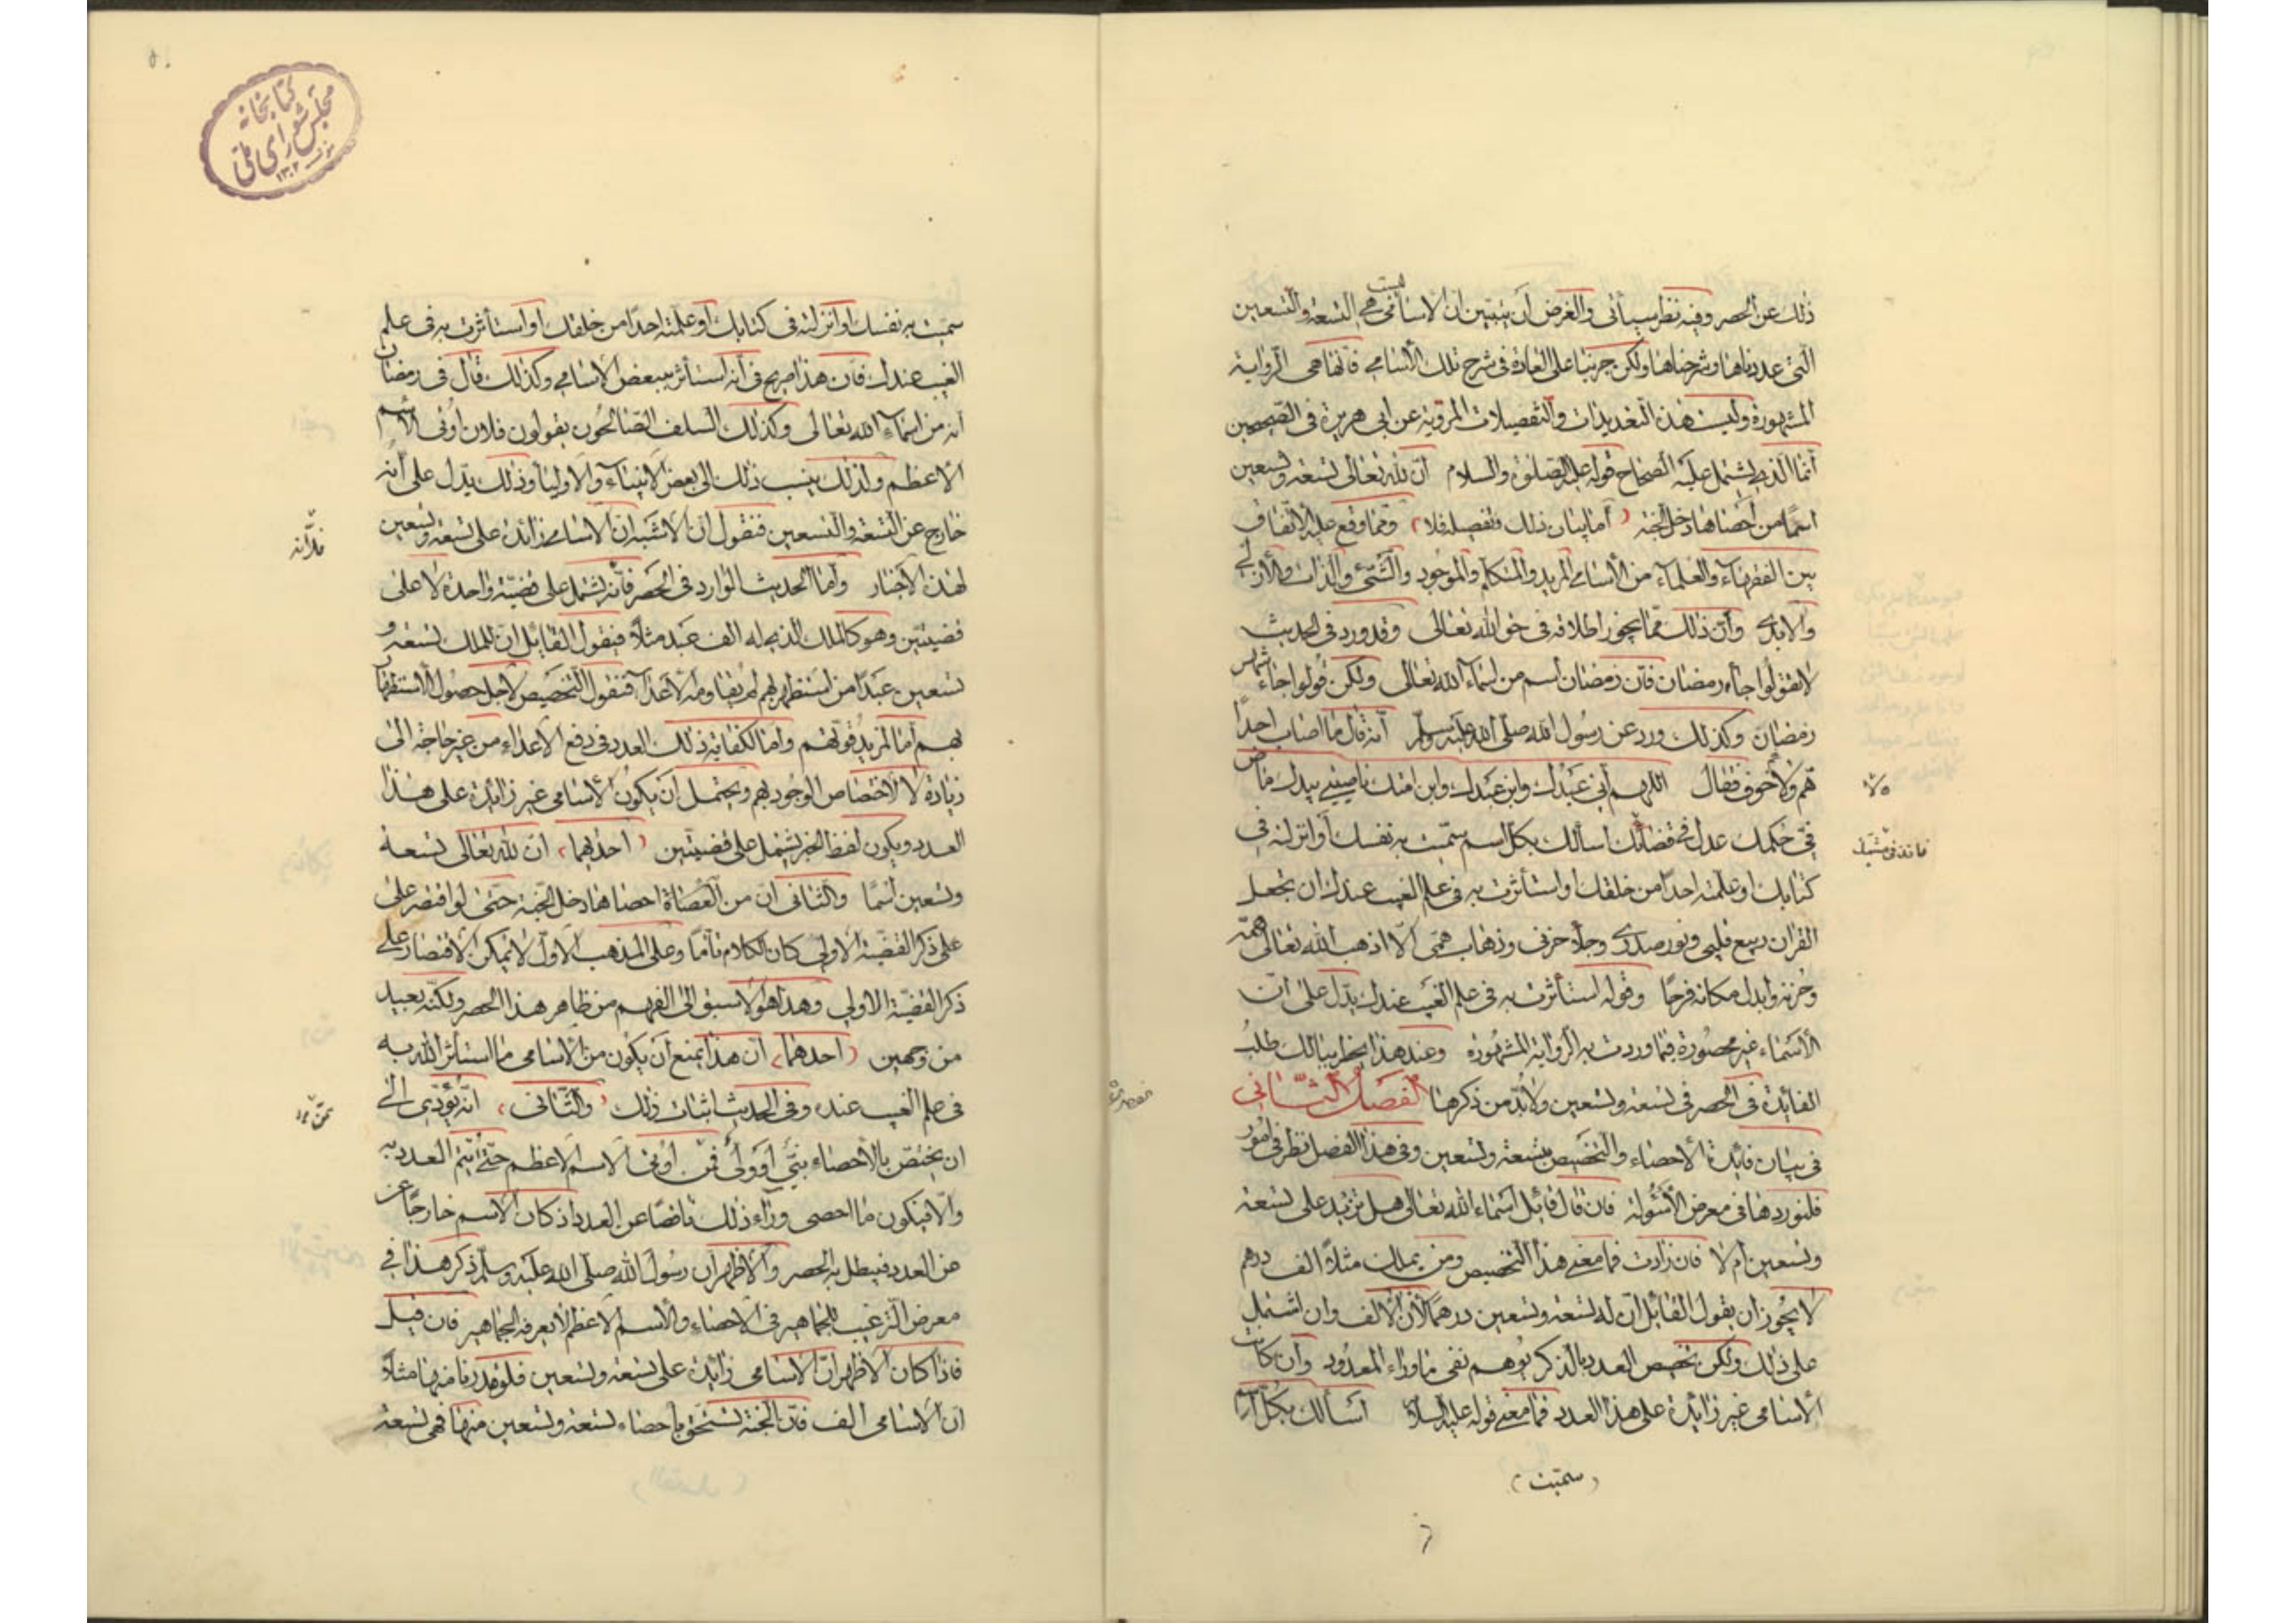 ذلك عن الحصر وفيه نظر سيأتى والغرض أن يتبين ان الاسامى ليست هى التسعة والتسعين
التى عددناها وشرحناها ولكن جرينا على العادة فى شرح تلك الأسامى فانها هى الرواية
المشهورة وليست هذه التعديدات والتفصيلات المروية عن ابى هريرة فى الصحيحين
انما الذى يشتمل عليه الصحاح قوله عليه الصلوة والسلام ان لله تعالى تسعة وتسعين
اسمًا من احصاها دخل الجنة (اما بيان ذلك وتفصيله فلا) ومما وقع عليه الاتفاق
بين الفقهاء والعلماء من الأسامى المريد والمتكلم والموجود والشئ والذات والأزلى
والابدى وأن ذلك مما يجوز اطلاقه فى حق الله تعالى وقد ورد فى الحديث
لا تقولوا جاء رمضان فان رمضان اسم من اسماء الله تعالى ولكن قولوا جاء شهر
رمضان وكذلك ورد عن رسول الله صلى الله عليه وسلم انه قال ما اصاب احدًا
هم ولا خوف فقال اللهم انى عبدك وابن عبدك وابن امتك ناصيتى بيدك ماض
فىّ حكمك عدل فى قضائك اسألك بكل اسم سميت به نفسك أو انزلته فى
كتابك او علمته احدًا من خلقك او استأثرت به فى علم الغيب عندك ان تجعل
القران ربيع قلبى ونور صدرى وجلاء حزنى وذهاب همى الا اذهب الله تعالى همّه
وحزنه وابدل مكانه فرحًا وقوله استأثرت به فى علم الغيب عندك يدل على ان
الأسماء غير محصورة فيما وردت به الرواية المشهورة وعند هذا يخطر ببالك طلب
الفائدة فى الحصر فى تسعة وتسعين ولا بد من ذكرها الفصل الثانى
فى بيان فائدة الأحصاء والتخصيص بتسعة وتسعين وفى هذا الفصل نظر فى امور
فلنوردها فى معرض الأسئولة فان قال قائل اسماء الله تعالى هل تزيد على تسعة
وتسعين ام لا فان زادت فما معنى هذا التخصيص ومن يملك مثلاً الف درهم
لا يجوز ان يقول القائل ان له تسعة وتسعين درهمًا لأن الالف وان اشتمل
على ذلك ولكن تخصيص العدد بالذكر يوهم نفى ما وراء المعدود وان كانت
الأسامى غير زائدة على هذا العدد فما معنى قوله عليه السلام اسألك بكل اسم
(سميت)
سميت به نفسك او انزلته فى كتابك او علمته احدًا من خلقك او استأثرت به فى علم
الغيب عندك فان هذا صريح فى انه استأثر ببعض الاسامى وكذلك قال فى رمضان
انه من اسماء الله تعالى وكذلك السلف الصالحون يقولون فلان اوتى الاسم
الأعظم ولذلك ينسب ذلك الى بعض الانبياء والأولياء وذلك يدل على أنه
خارج عن التسعة والتسعين فنقول ان الاشبه ان الاسامى زائدة على تسعة وتسعين
لهذه الأخبار وأما الحديث الوارد فى الحصر فانه يشتمل على قضية واحدة لا على
قضيتين وهو كالملك الذى له الف عبد مثلاً فيقول القائل ان للملك تسعة و
تسعين عبدًا من استظهر بهم لم يقاومه الأعداء فنقول التخصيص لاجل حصول الاستظهار
بهم أما لمزيد قوتهم واما لكفاية ذلك العدد فى دفع الأعداء من غير حاجة الى
زيادة لا لاختصاص الوجود بهم ويحتمل ان يكون الأسامى غير زائدة على هذا
العدد ويكون لفظ الخبر يشتمل على قضيتين (احدهما) ان لله تعالى تسعة
وتسعين اسمًا والثانى ان من احصاها دخل الجنة حتى لو اقتصر على
على ذكر القضية الأولى كان الكلام تامًا وعلى المذهب الأول لا يمكن الاقتصار على
ذكر القضية الاولى وهذا هو الاسبق الى الفهم من ظاهر هذا الحصر ولكنه بعيد
من وجهين (احدهما) ان هذا يمنع أن يكون من الأسامى ما استأثر الله به
فى علم الغيب عنده وفى الحديث اثبات ذلك (والثانى) انه يؤدى الى
ان يختص بالأحصاء نبىّ أو ولى فمن اوتى الاسم الاعظم حتى يتم العدد به
والا فيكون ما احصى وراء ذلك ناقصًا عن العدد اذ كان الاسم خارجًا عن
عن العدد فيبطل به الحصر والأظهر ان رسول الله صلى الله عليه وسلم ذكر هذا فى
معرض الترغيب للجماهير فى الاحصاء والأسم الاعظم لا يعرفه الجماهير فان قيل
فاذا كان الاظهر ان الاسامى زائدة على تسعة وتسعين فلو قدرنا منها مثلاً
ان الاسامى الف فان الجنة تستحق بأحصاء تسعة وتسعين منها فهى تسعة
كتابخانه
مجلس شوراى ملى
١٣٠٢